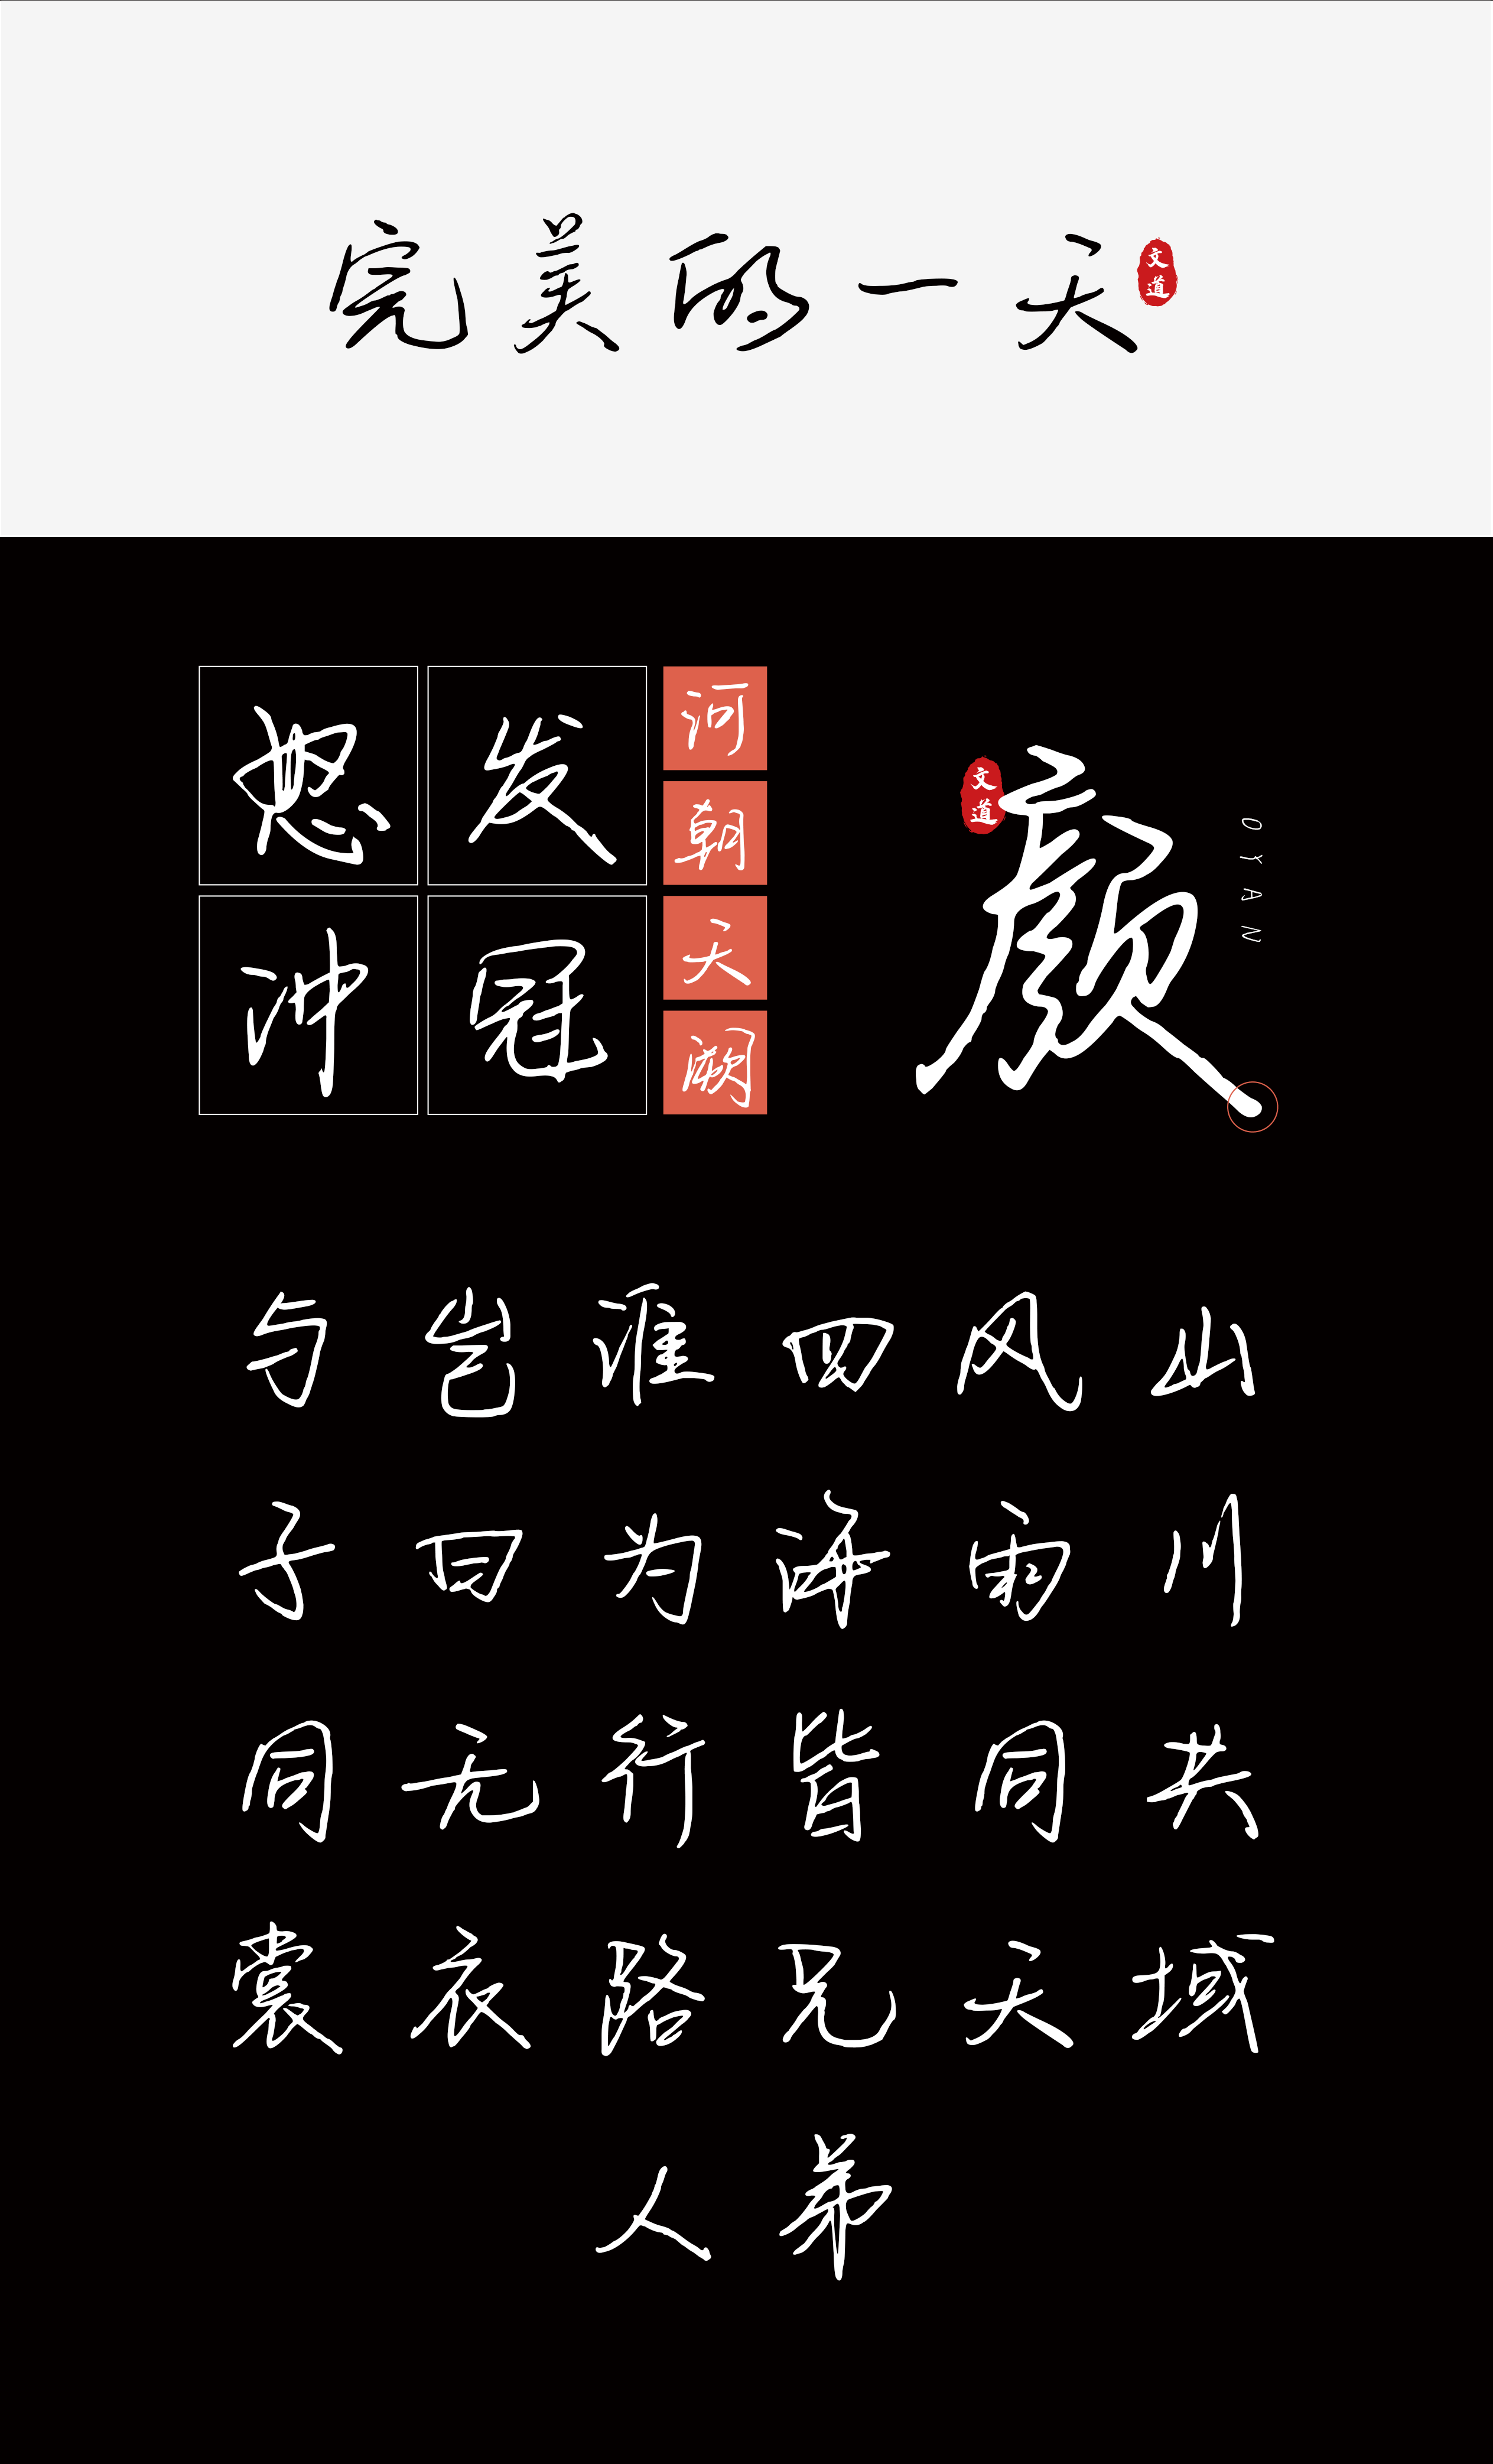 完美的一天
文道
怒发
冲冠
河
朝
天
阙
文道
颜
D Y A N
山川共域
风雨同天
四海皆兄弟
谁为行路人
岂曰无衣
与子同裳